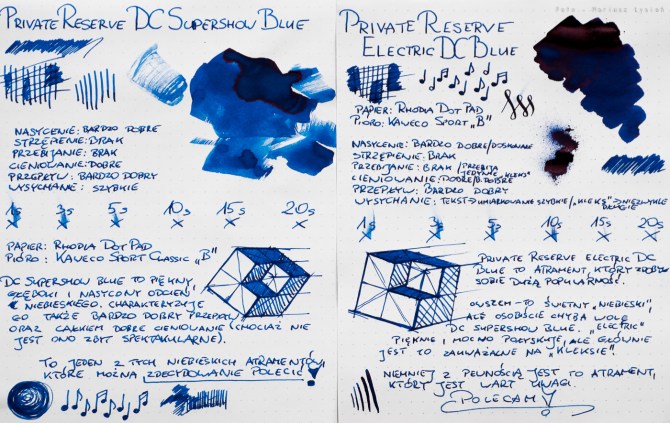 Private Reserve DC Supershow Blue
Nasycenie: Bardzo dobre
Strzępienie: Brak
Przebijanie: Brak
Cieniowanie: Dobre
Przepływ: Bardzo dobry
Wysychanie: Szybkie
1s 3s 5s 10s 15s 20s
Papier: Rhodia Dot Pad
Pióro: Kaweco Sport Classic „B”
DC Supershow Blue to piękny,
głęboki i nasycony odcień
niebieskiego. Charakteryzuje
go także bardzo dobry przepływ
oraz całkiem dobre cieniowanie (chociaż nie
jest ono zbyt spektakularne).
To jeden z tych niebieskich atramentów,
które można zdecydowanie polecić!
Foto - Mariusz Łysień
Private Reserve
Electric DC Blue
Papier: Rhodia Dot Pad
Pióro: Kaweco Sport „B”
Nasycenie: Bardzo dobre/doskonałe
Strzępienie: Brak
Przebijanie: Brak / przebija
jedynie „kleks”
Cieniowanie: Dobre/B. dobre
Przepływ: Bardzo dobry
Wysychanie: Tekst → umiarkowanie szybkie / „kleks” → niezwykle
długie
1s 3s 5s 10s 15s 20s
Private Reserve Electric DC
Blue to atrament, który zdobył
sobie dużą popularność.
Owszem - to świetny „niebieski”,
ale osobiście chyba wolę
DC Supershow Blue. „Electric”
pięknie i mocno połyskuje, ale głównie
jest to zauważalne na „kleksie”.
Niemniej z pewnością jest to atrament,
który jest wart uwagi.
Polecam!